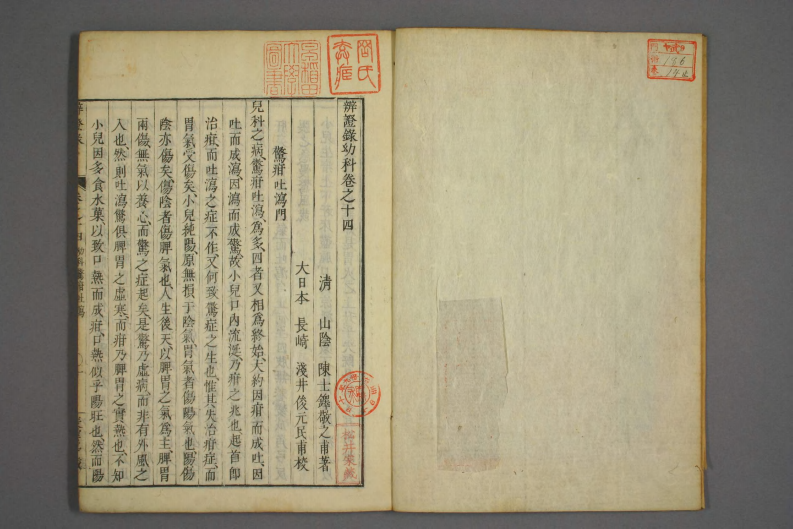 辨證錄幼科卷之十四
清　山陰　陳士鐸敬之甫著
大日本　長崎　淺井俊元民甫校
驚疳吐瀉門
兒科之病驚疳吐瀉爲多四者又相爲終始大約因疳而成吐因
吐而成瀉因瀉而成驚故小兒口內流涎乃疳之兆也起首卽
治疳而吐瀉之症不作又何致驚症之生也惟其失治疳症而
胃氣受傷矣小兒純陽原無損于陰氣胃氣者傷陽氣也陽傷
陰亦傷矣傷陰者傷脾氣也人生後天以脾胃之氣爲主脾胃
兩傷無氣以養心而驚之症起矣是驚乃虛病而非有外風之
入也然則吐瀉驚俱脾胃之虛寒而疳乃脾胃之實熱也不知
小兒因多食水菓以致口熱而成疳口熱似乎陽旺也然而陽
辨證錄
早稻田大學圖書
126